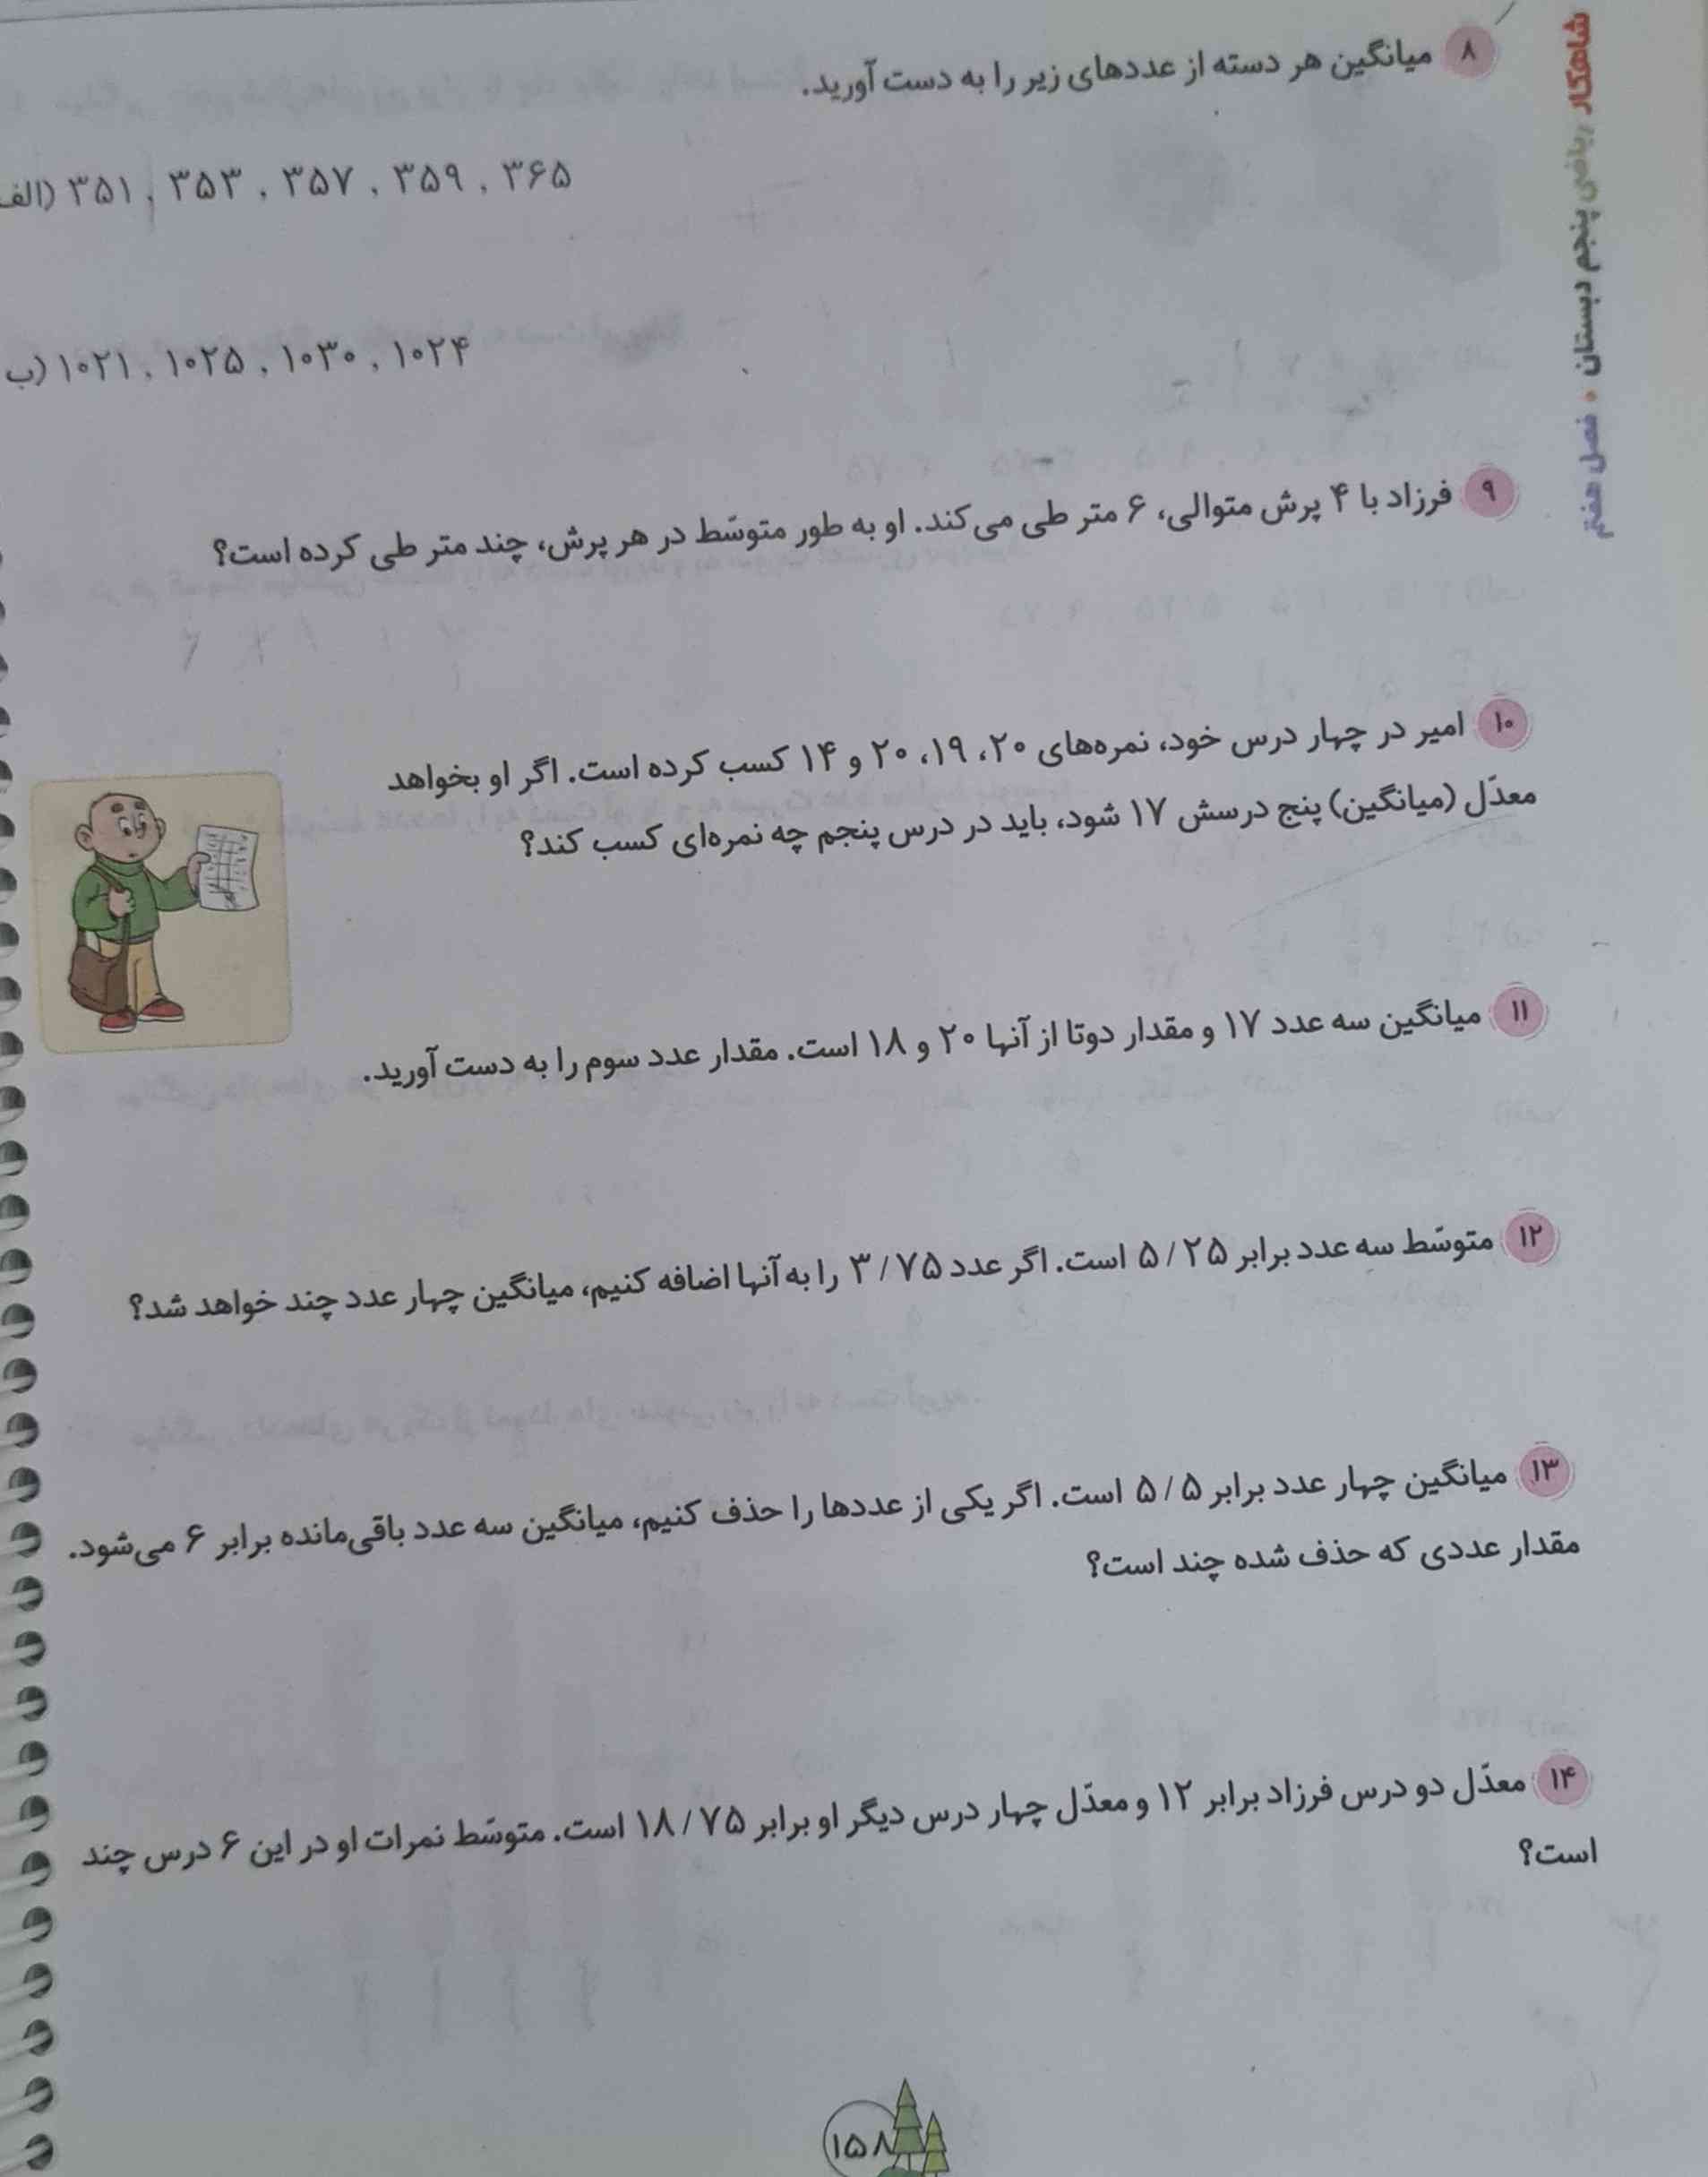 شاهکار ریاضی پنجم دبستان • فصل هفتم
۸ میانگین هر دسته از عددهای زیر را به دست آورید.
الف) ۳۵۱ , ۳۵۳ , ۳۵۷ , ۳۵۹ , ۳۶۵
ب) ۱۰۲۱ , ۱۰۲۵ , ۱۰۳۰ , ۱۰۲۴
۹ فرزاد با ۴ پرش متوالی، ۶ متر طی می‌کند. او به طور متوسّط در هر پرش، چند متر طی کرده است؟
۱۰ امیر در چهار درس خود، نمره‌های ۲۰، ۱۹، ۲۰ و ۱۴ کسب کرده است. اگر او بخواهد
معدّل (میانگین) پنج درسش ۱۷ شود، باید در درس پنجم چه نمره‌ای کسب کند؟
۱۱ میانگین سه عدد ۱۷ و مقدار دوتا از آنها ۲۰ و ۱۸ است. مقدار عدد سوم را به دست آورید.
۱۲ متوسّط سه عدد برابر ۵/۲۵ است. اگر عدد ۳/۷۵ را به آنها اضافه کنیم، میانگین چهار عدد چند خواهد شد؟
۱۳ میانگین چهار عدد برابر ۵/۵ است. اگر یکی از عددها را حذف کنیم، میانگین سه عدد باقی‌مانده برابر ۶ می‌شود.
مقدار عددی که حذف شده چند است؟
۱۴ معدّل دو درس فرزاد برابر ۱۲ و معدّل چهار درس دیگر او برابر ۱۸/۷۵ است. متوسّط نمرات او در این ۶ درس چند
است؟
۱۵۸